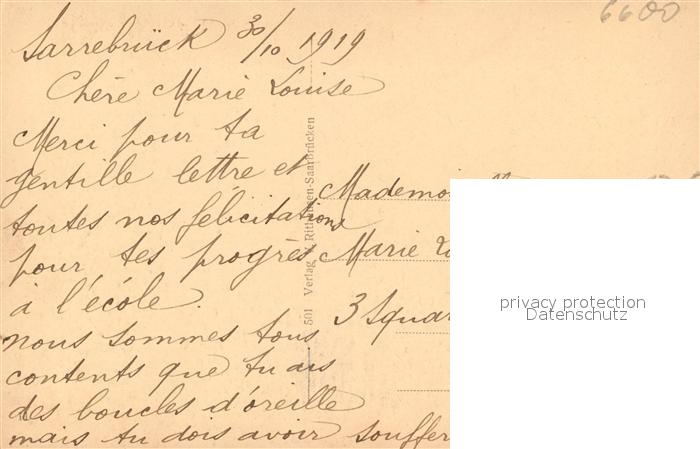 6600
Sarrebrück 30/10 1919
Chère Marie Louise
Merci pour ta
gentille lettre et
toutes nos félicitations
pour tes progrès
à l'école.
nous sommes tous
contents que tu ais
des boucles d'oreille
mais tu dois avoir souffer
Mademoi
Marie Lo
3 Squar
501 Verlag
Saarbrücken
privacy protection
Datenschutz